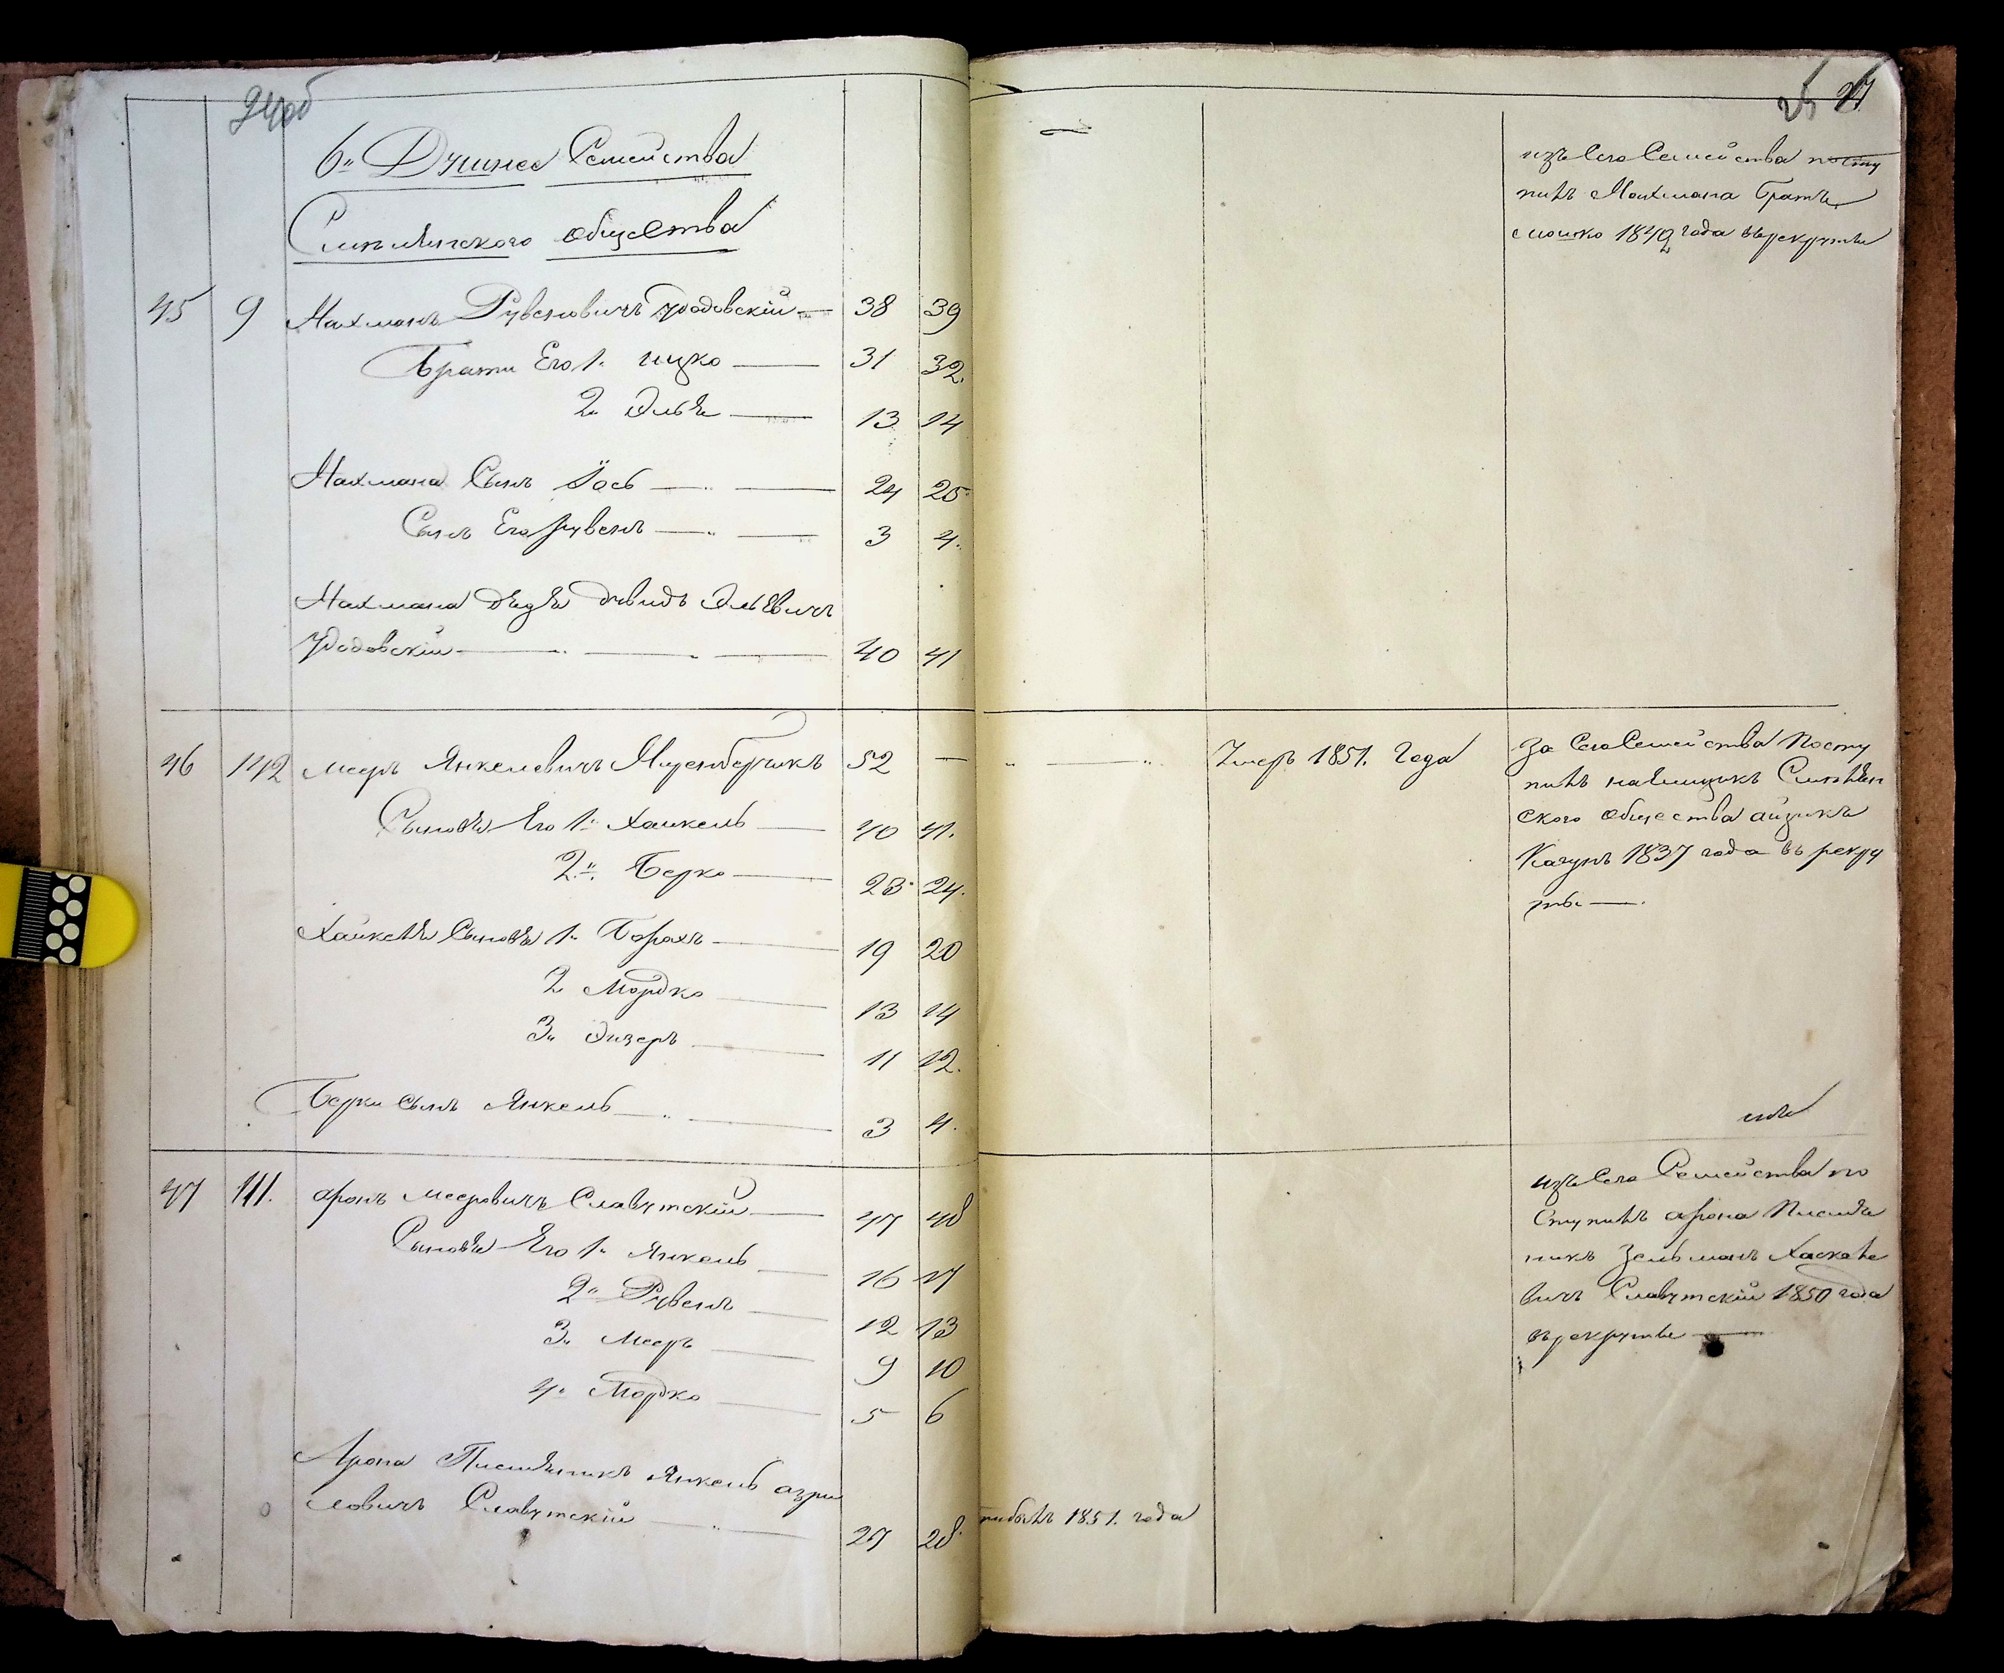 24 об
6и Душнея Семейства
общества
45 9 Нахманъ Рувеновичъ Удодовскій 38 39
Братя Его 1. ицко 31 32.
2. Эльѣ 13 14
Нахмана Сынъ Іось 24 25
Сынъ Его рувенъ 3 4.
Нахмана дядѣ давидъ Эльевичъ
Удодовскій 40 41
46 142 мееръ Янкелевичъ 52 —
Сыновѣ Его 1. Хаикель 40 41.
2. Берко 23 24.
Хаикелѣ Сыновѣ 1. Борахъ 19 20
2 Мордко 13 14
3. Элизеръ 11 12.
Берки сынъ Янкель 3 4.
47 111. аронъ мееровичъ Славутскій 47 48
Сыновѣ Его 1. Янкель 16 17
2. Рувенъ 12 13
3. Мееръ 9 10
4. Мордко 5 6
Арона Племѣникъ Янкель азри
ловичъ Славутскій 27 28
25
изъ Сего Семейства посту
пилъ Нахмана Братъ
мошко 1849 года въ рекруты
Умеръ 1851. Года
За Сего Семейства Посту
пилъ наемщикъ
ского общества айзикъ
Качунъ 1837 года въ рекру
ты —.
изъ Сего Семейства по
ступилъ арона Племѣ
никъ Зельманъ Хаскеле
вичъ Славутскій 1850 года
въ рекруты —
прибылъ 1851. года